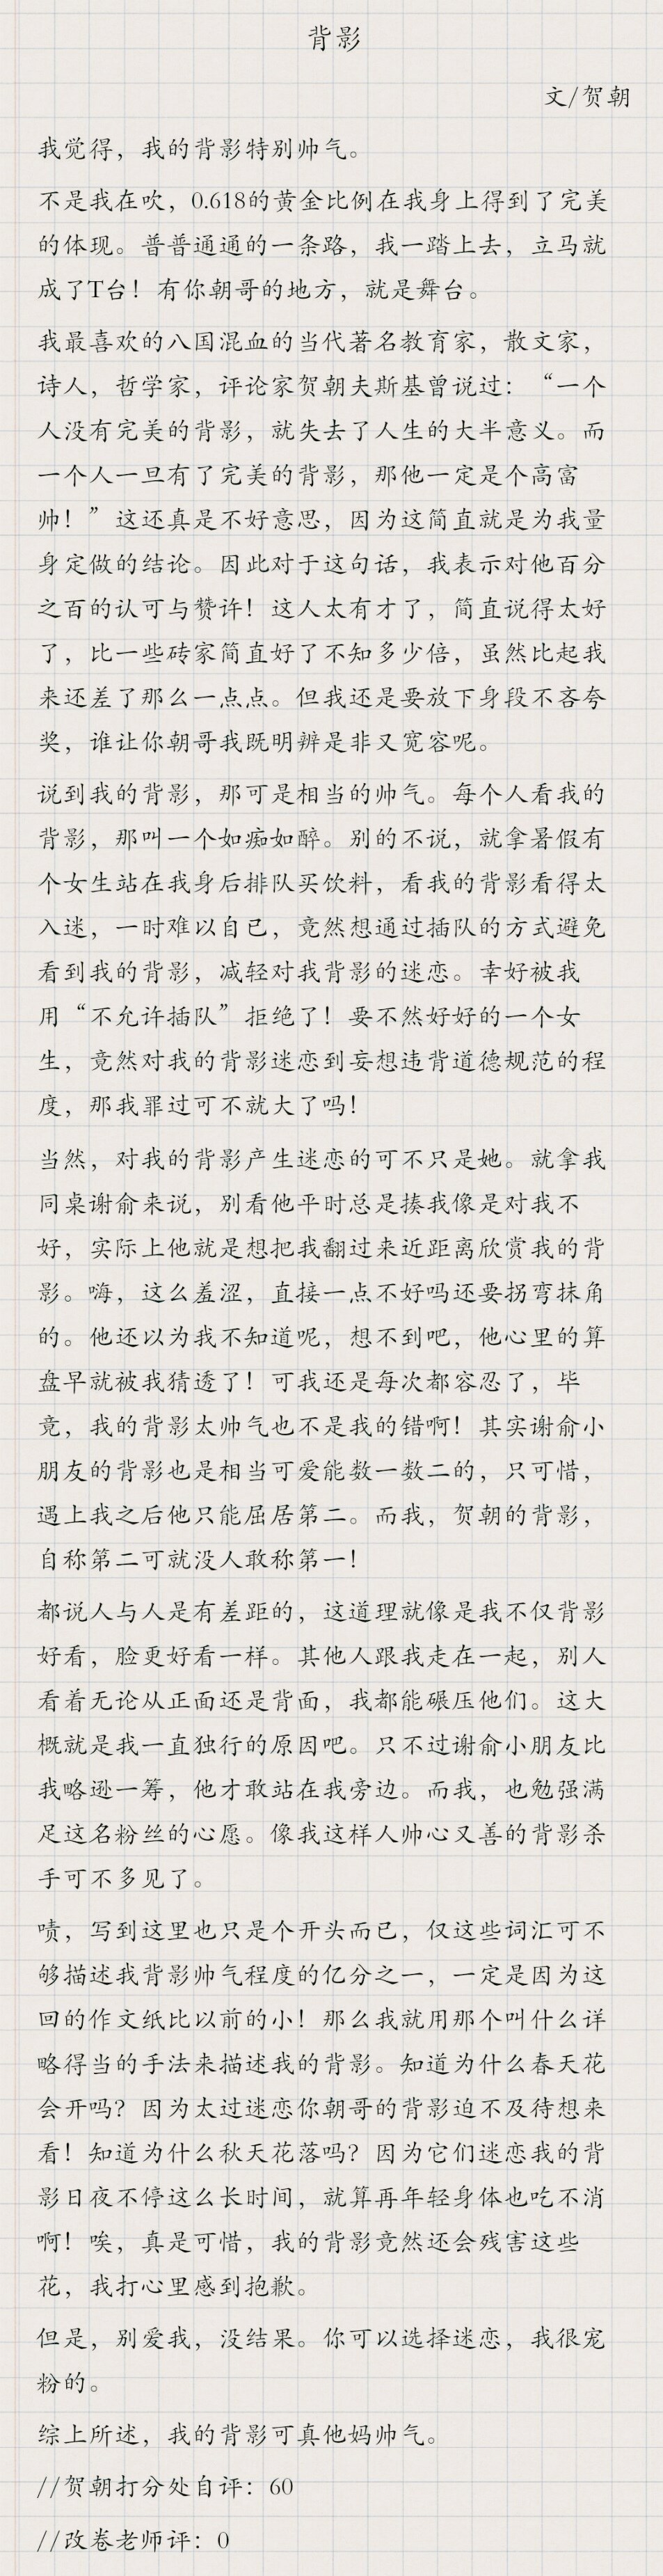 背影
文/贺朝
我觉得，我的背影特别帅气。
不是我在吹，0.618的黄金比例在我身上得到了完美
的体现。普普通通的一条路，我一踏上去，立马就
成了T台！有你朝哥的地方，就是舞台。
我最喜欢的八国混血的当代著名教育家，散文家，
诗人，哲学家，评论家贺朝夫斯基曾说过：“一个
人没有完美的背影，就失去了人生的大半意义。而
一个人一旦有了完美的背影，那他一定是个高富
帅！”这还真是不好意思，因为这简直就是为我量
身定做的结论。因此对于这句话，我表示对他百分
之百的认可与赞许！这人太有才了，简直说得太好
了，比一些砖家简直好了不知多少倍，虽然比起我
来还差了那么一点点。但我还是要放下身段不吝夸
奖，谁让你朝哥我既明辨是非又宽容呢。
说到我的背影，那可是相当的帅气。每个人看我的
背影，那叫一个如痴如醉。别的不说，就拿暑假有
个女生站在我身后排队买饮料，看我的背影看得太
入迷，一时难以自已，竟然想通过插队的方式避免
看到我的背影，减轻对我背影的迷恋。幸好被我
用“不允许插队”拒绝了！要不然好好的一个女
生，竟然对我的背影迷恋到妄想违背道德规范的程
度，那我罪过可不就大了吗！
当然，对我的背影产生迷恋的可不只是她。就拿我
同桌谢俞来说，别看他平时总是揍我像是对我不
好，实际上他就是想把我翻过来近距离欣赏我的背
影。嗨，这么羞涩，直接一点不好吗还要拐弯抹角
的。他还以为我不知道呢，想不到吧，他心里的算
盘早就被我猜透了！可我还是每次都容忍了，毕
竟，我的背影太帅气也不是我的错啊！其实谢俞小
朋友的背影也是相当可爱能数一数二的，只可惜，
遇上我之后他只能屈居第二。而我，贺朝的背影，
自称第二可就没人敢称第一！
都说人与人是有差距的，这道理就像是我不仅背影
好看，脸更好看一样。其他人跟我走在一起，别人
看着无论从正面还是背面，我都能碾压他们。这大
概就是我一直独行的原因吧。只不过谢俞小朋友比
我略逊一筹，他才敢站在我旁边。而我，也勉强满
足这名粉丝的心愿。像我这样人帅心又善的背影杀
手可不多见了。
啧，写到这里也只是个开头而已，仅这些词汇可不
够描述我背影帅气程度的亿分之一，一定是因为这
回的作文纸比以前的小！那么我就用那个叫什么详
略得当的手法来描述我的背影。知道为什么春天花
会开吗？因为太过迷恋你朝哥的背影迫不及待想来
看！知道为什么秋天花落吗？因为它们迷恋我的背
影日夜不停这么长时间，就算再年轻身体也吃不消
啊！唉，真是可惜，我的背影竟然还会残害这些
花，我打心里感到抱歉。
但是，别爱我，没结果。你可以选择迷恋，我很宠
粉的。
综上所述，我的背影可真他妈帅气。
//贺朝打分处自评：60
//改卷老师评：0